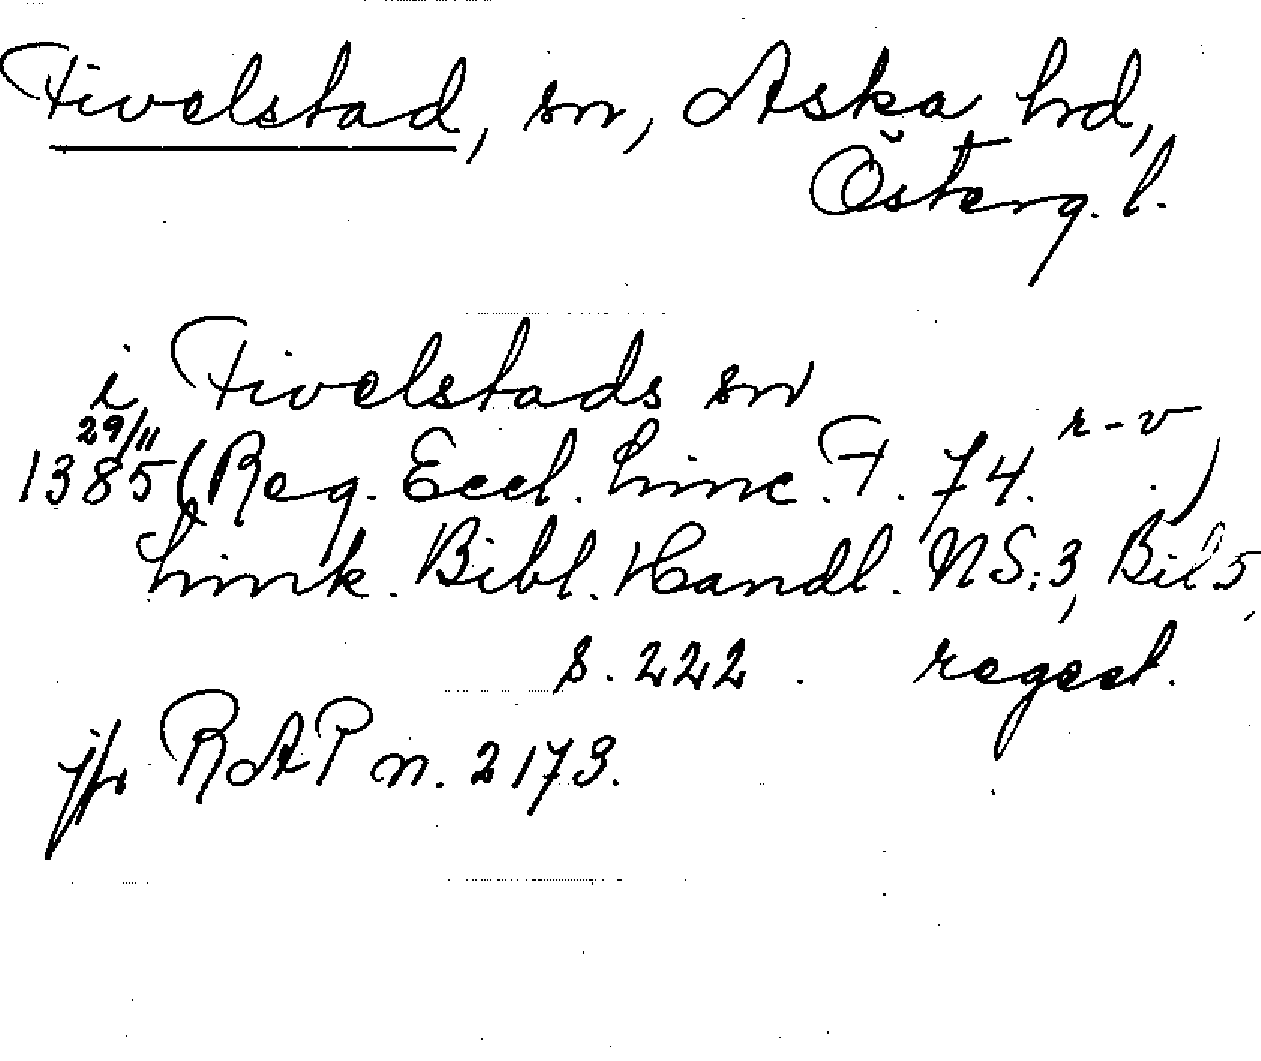 Fivelstad, sn, Aska hd,
Österg. l.
i Fivelstads sn
29/11 r-v
1385 (Reg. Eccl. Linc. F. 74. .)
Link. Bibl. Handl. NS:3, Bil 5,
s. 222. regest.
jfr RAP n. 2173.